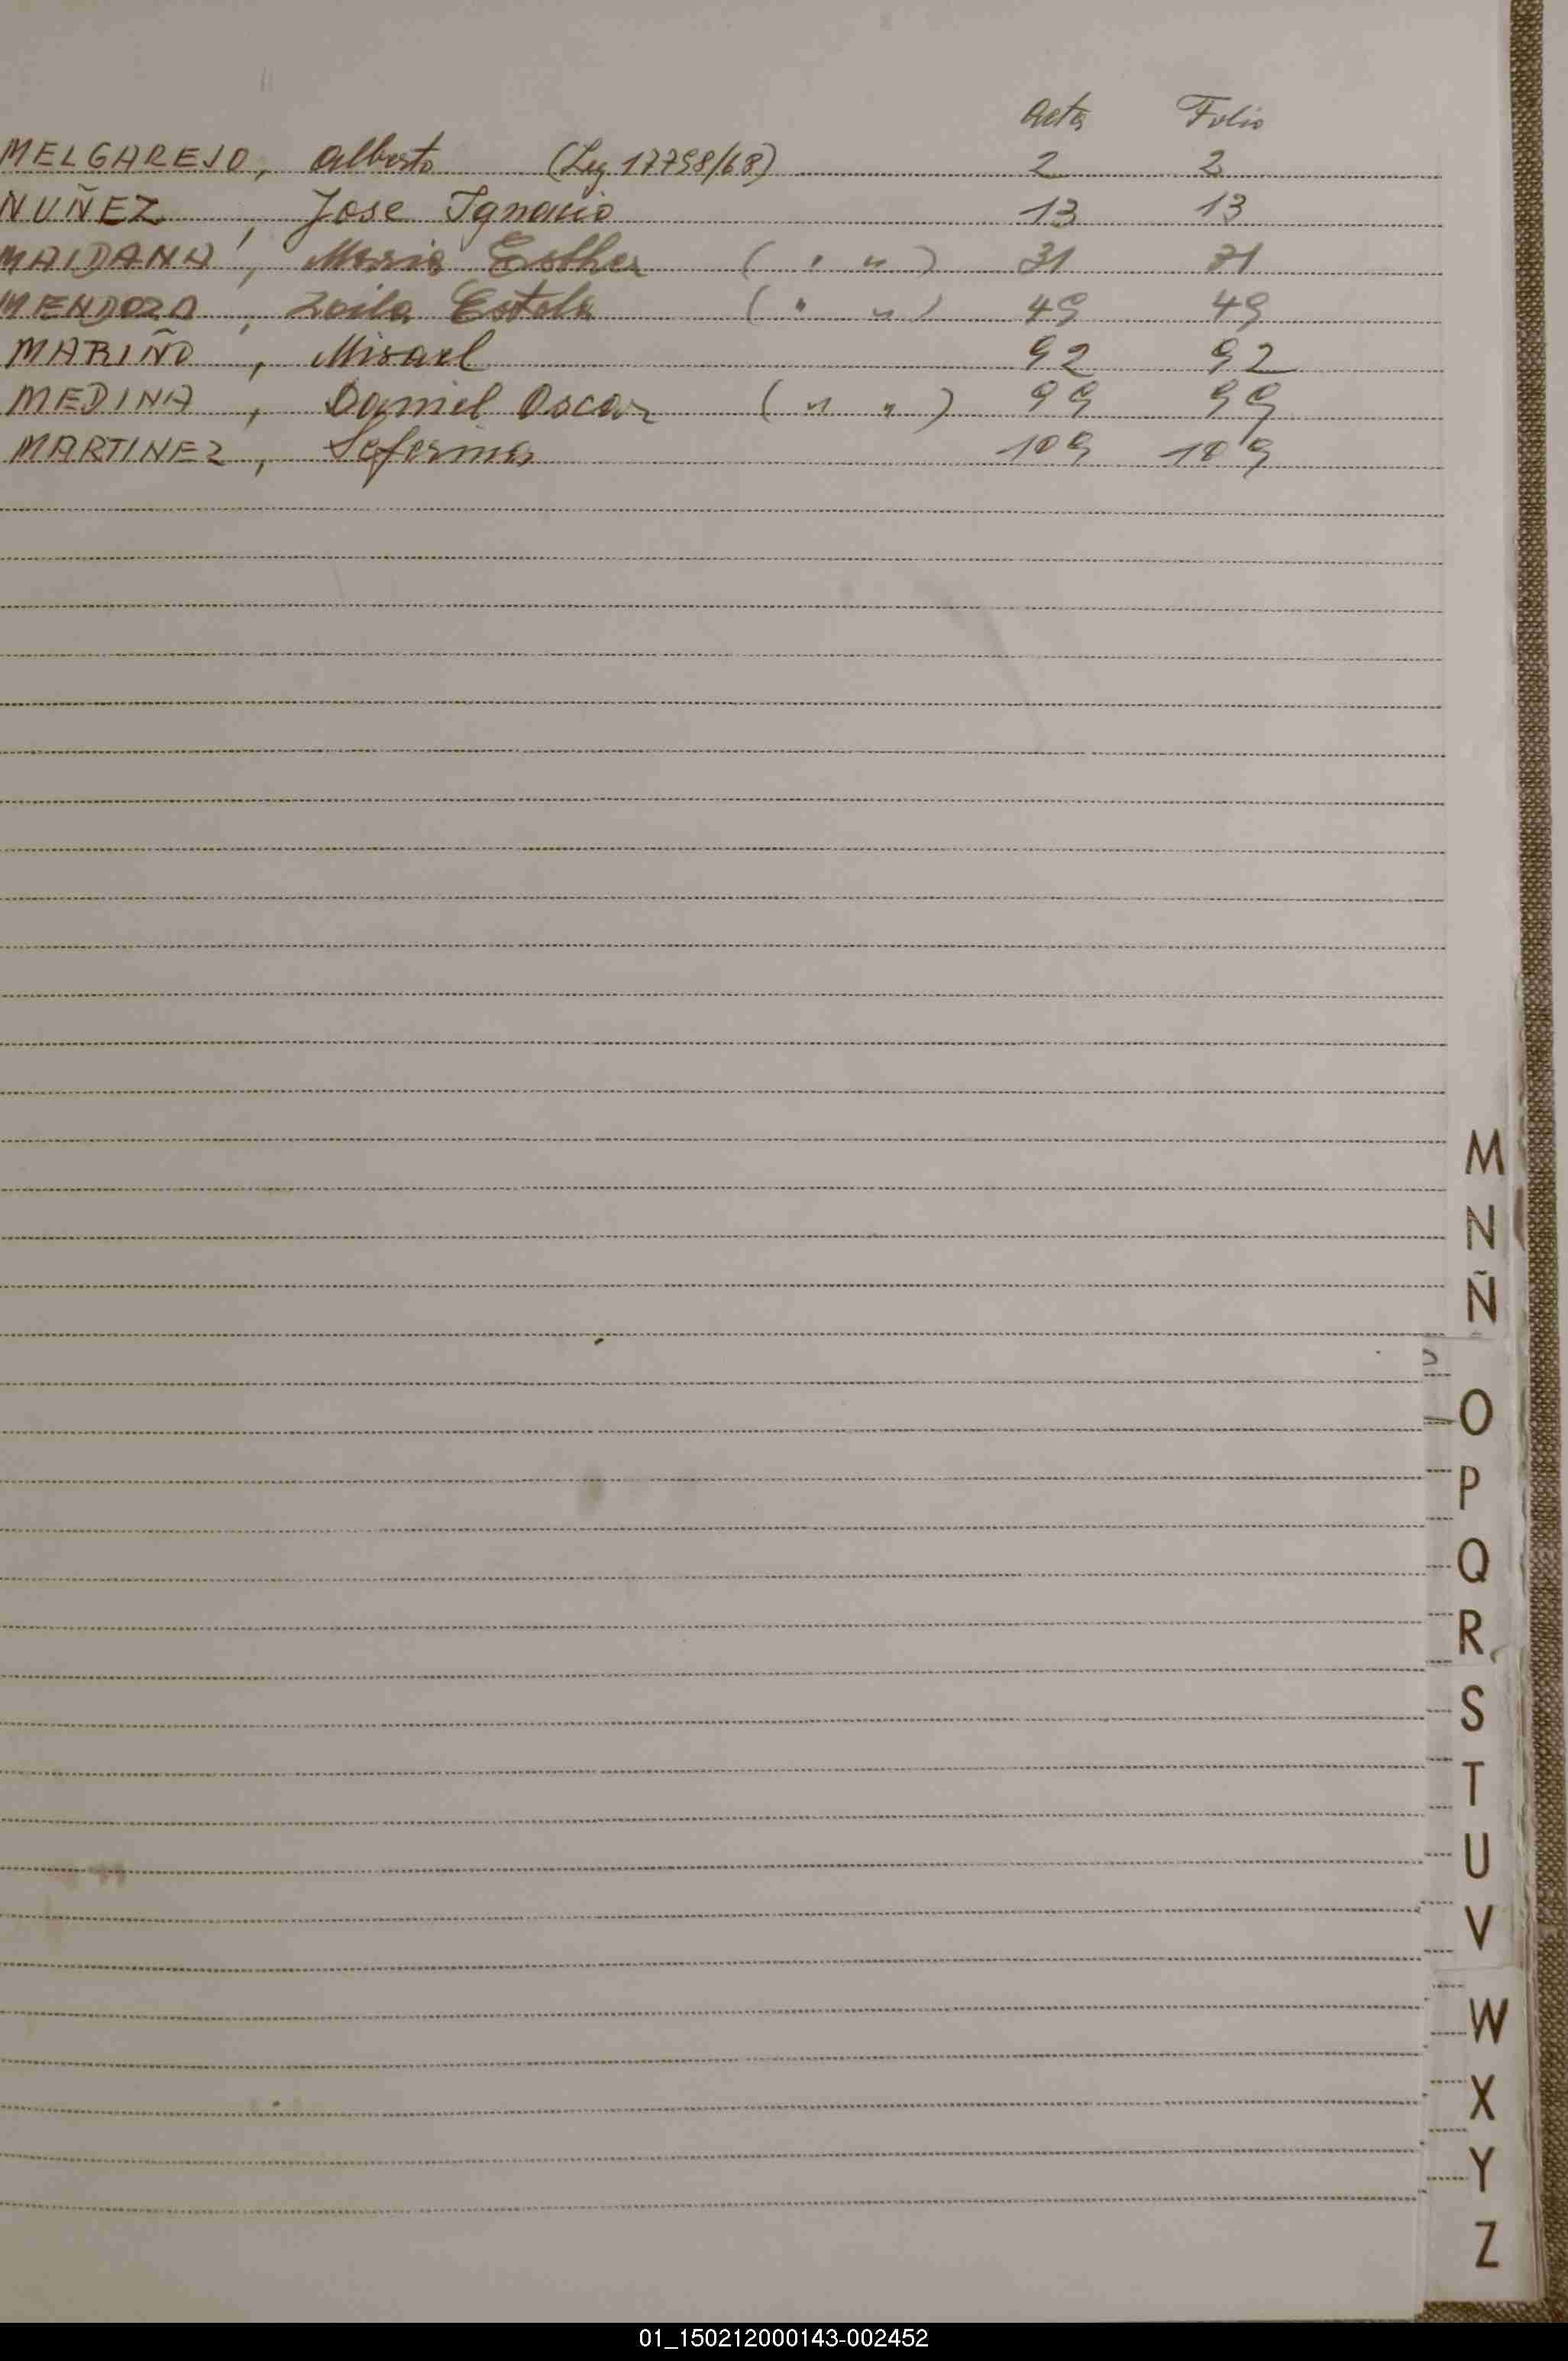 Acta Folio
MELGAREJO, Alberto (Ley 17798/68) 2 2
NUÑEZ, Jose Ignacio 13 13
MAIDANA, Maria Esther ( " " ) 31 31
MENDOZA, Zoila Estela ( " " ) 49 49
MARIÑO, Misael 92 92
MEDINA, Daniel Oscar ( " " ) 99 99
MARTINEZ, Seferina 109 109
M
N
Ñ
O
P
Q
R
S
T
U
V
W
X
Y
Z
01_150212000143-002452